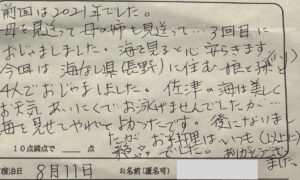 前回は2021年でした。
母を見送って母の姉を見送って…3回目に
おじゃましました。海を見ると心安らぎます
今回は海なし県(長野)に住む娘と孫と
4人でおじゃましました。佐津の海は美しく
お天気あいにくでお泳げませんでしたが…
海を見せてやれてよかったです。後になりまし
たが お料理はいつも(以上に)
10点満点で 点
でした。ありがとうござい
ました
宿泊日 8月11日 お名前(匿名可)